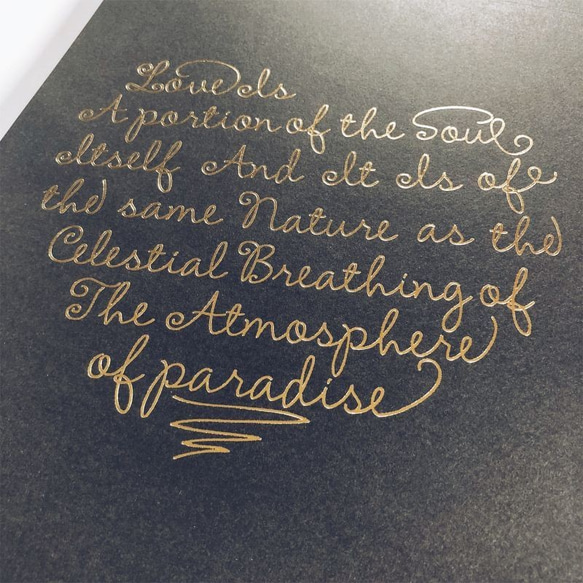 Love Is
A portion of the Soul
Itself And It Is of
the same Nature as the
Celestial Breathing of
The Atmosphere
of paradise